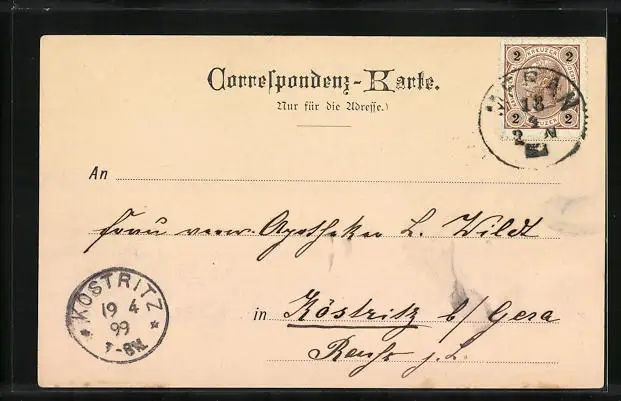 Correspondenz-Karte.
Nur für die Adresse.)
2 KREUZER 2
2 KREUZER 2
MERAN
18
4
An
Frau verw. Apotheker L. Wildt
in Köstritz b/ Gera
Reuß j. L.
KÖSTRITZ
19 4
99
7-8N.